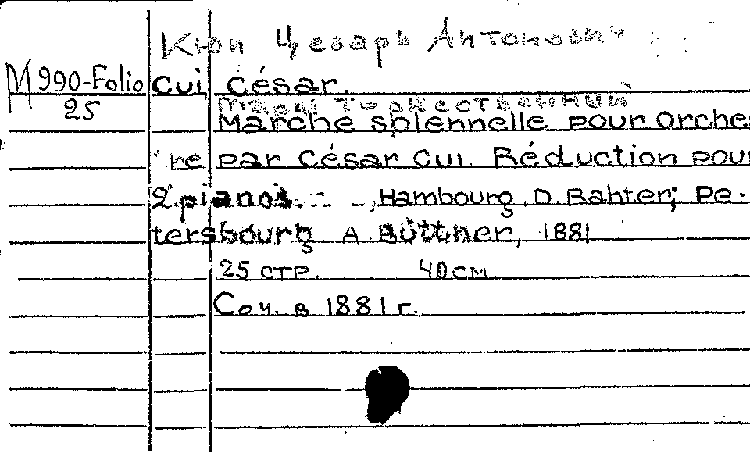 Кюи Цезарь Антонович
М 990-Folio Cui César.
25 Марш торжественный
Marche solennelle pour Orches
re par César Cui. Réduction pour
2 pianos. - Hambourg, D. Rahter; Pe-
tersbourg A. Büttner, 1881
25 стр. 40 см
Соч. в 1881 г.